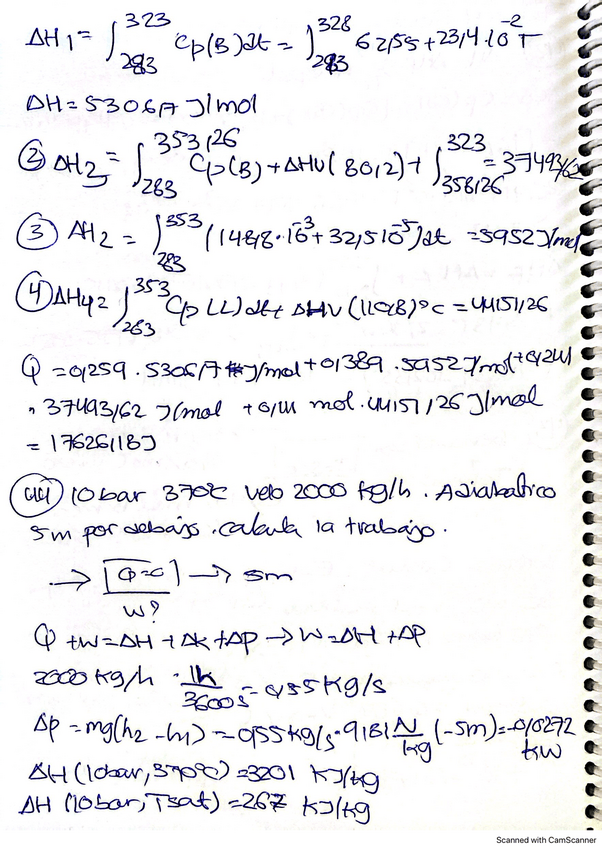 ΔH1 = ∫₂₈₃³²³ Cp(B)dt = ∫₂₈₃³²⁸ 62,55 + 23,4·10⁻² T
ΔH = 5306,7 J/mol
② ΔH2 = ∫₂₈₃³⁵³,²⁶ Cp(B) + ΔHv(80,2) + ∫₃₅₈,₂₆³²³ = 37493,62
③ ΔH2 = ∫₂₈₃³⁵³ (148,8·10⁻³ + 32,5 10⁻⁵)dt = 5952 J/mol
④ ΔH4 = ∫₂₈₃³⁵³ Cp(L)dt + ΔHv(110,8)°C = 44151,26
Q = 0,259 . 5306,7 J/mol + 0,389 . 5952 J/mol + 0,241
. 37493,62 J/mol + 0,111 mol . 44151,26 J/mol
= 17626,18 J
44) 10 bar 370°C velo 2000 kg/h . Adiabatico
5m por debajo . calcula la trabajo.
→ Q=0 → 5m
W?
Q + W = ΔH + Δk + Δp → W = ΔH + Δp
2000 kg/h · 1h/3600s = 0,55 kg/s
Δp = mg(h2 - h1) = 0,55 kg/s · 9,81 N/kg (-5m) = -0,0272 kW
ΔH (10bar, 370°C) = 3201 kJ/kg
ΔH (10bar, Tsat) = 267 kJ/kg
Scanned with CamScanner